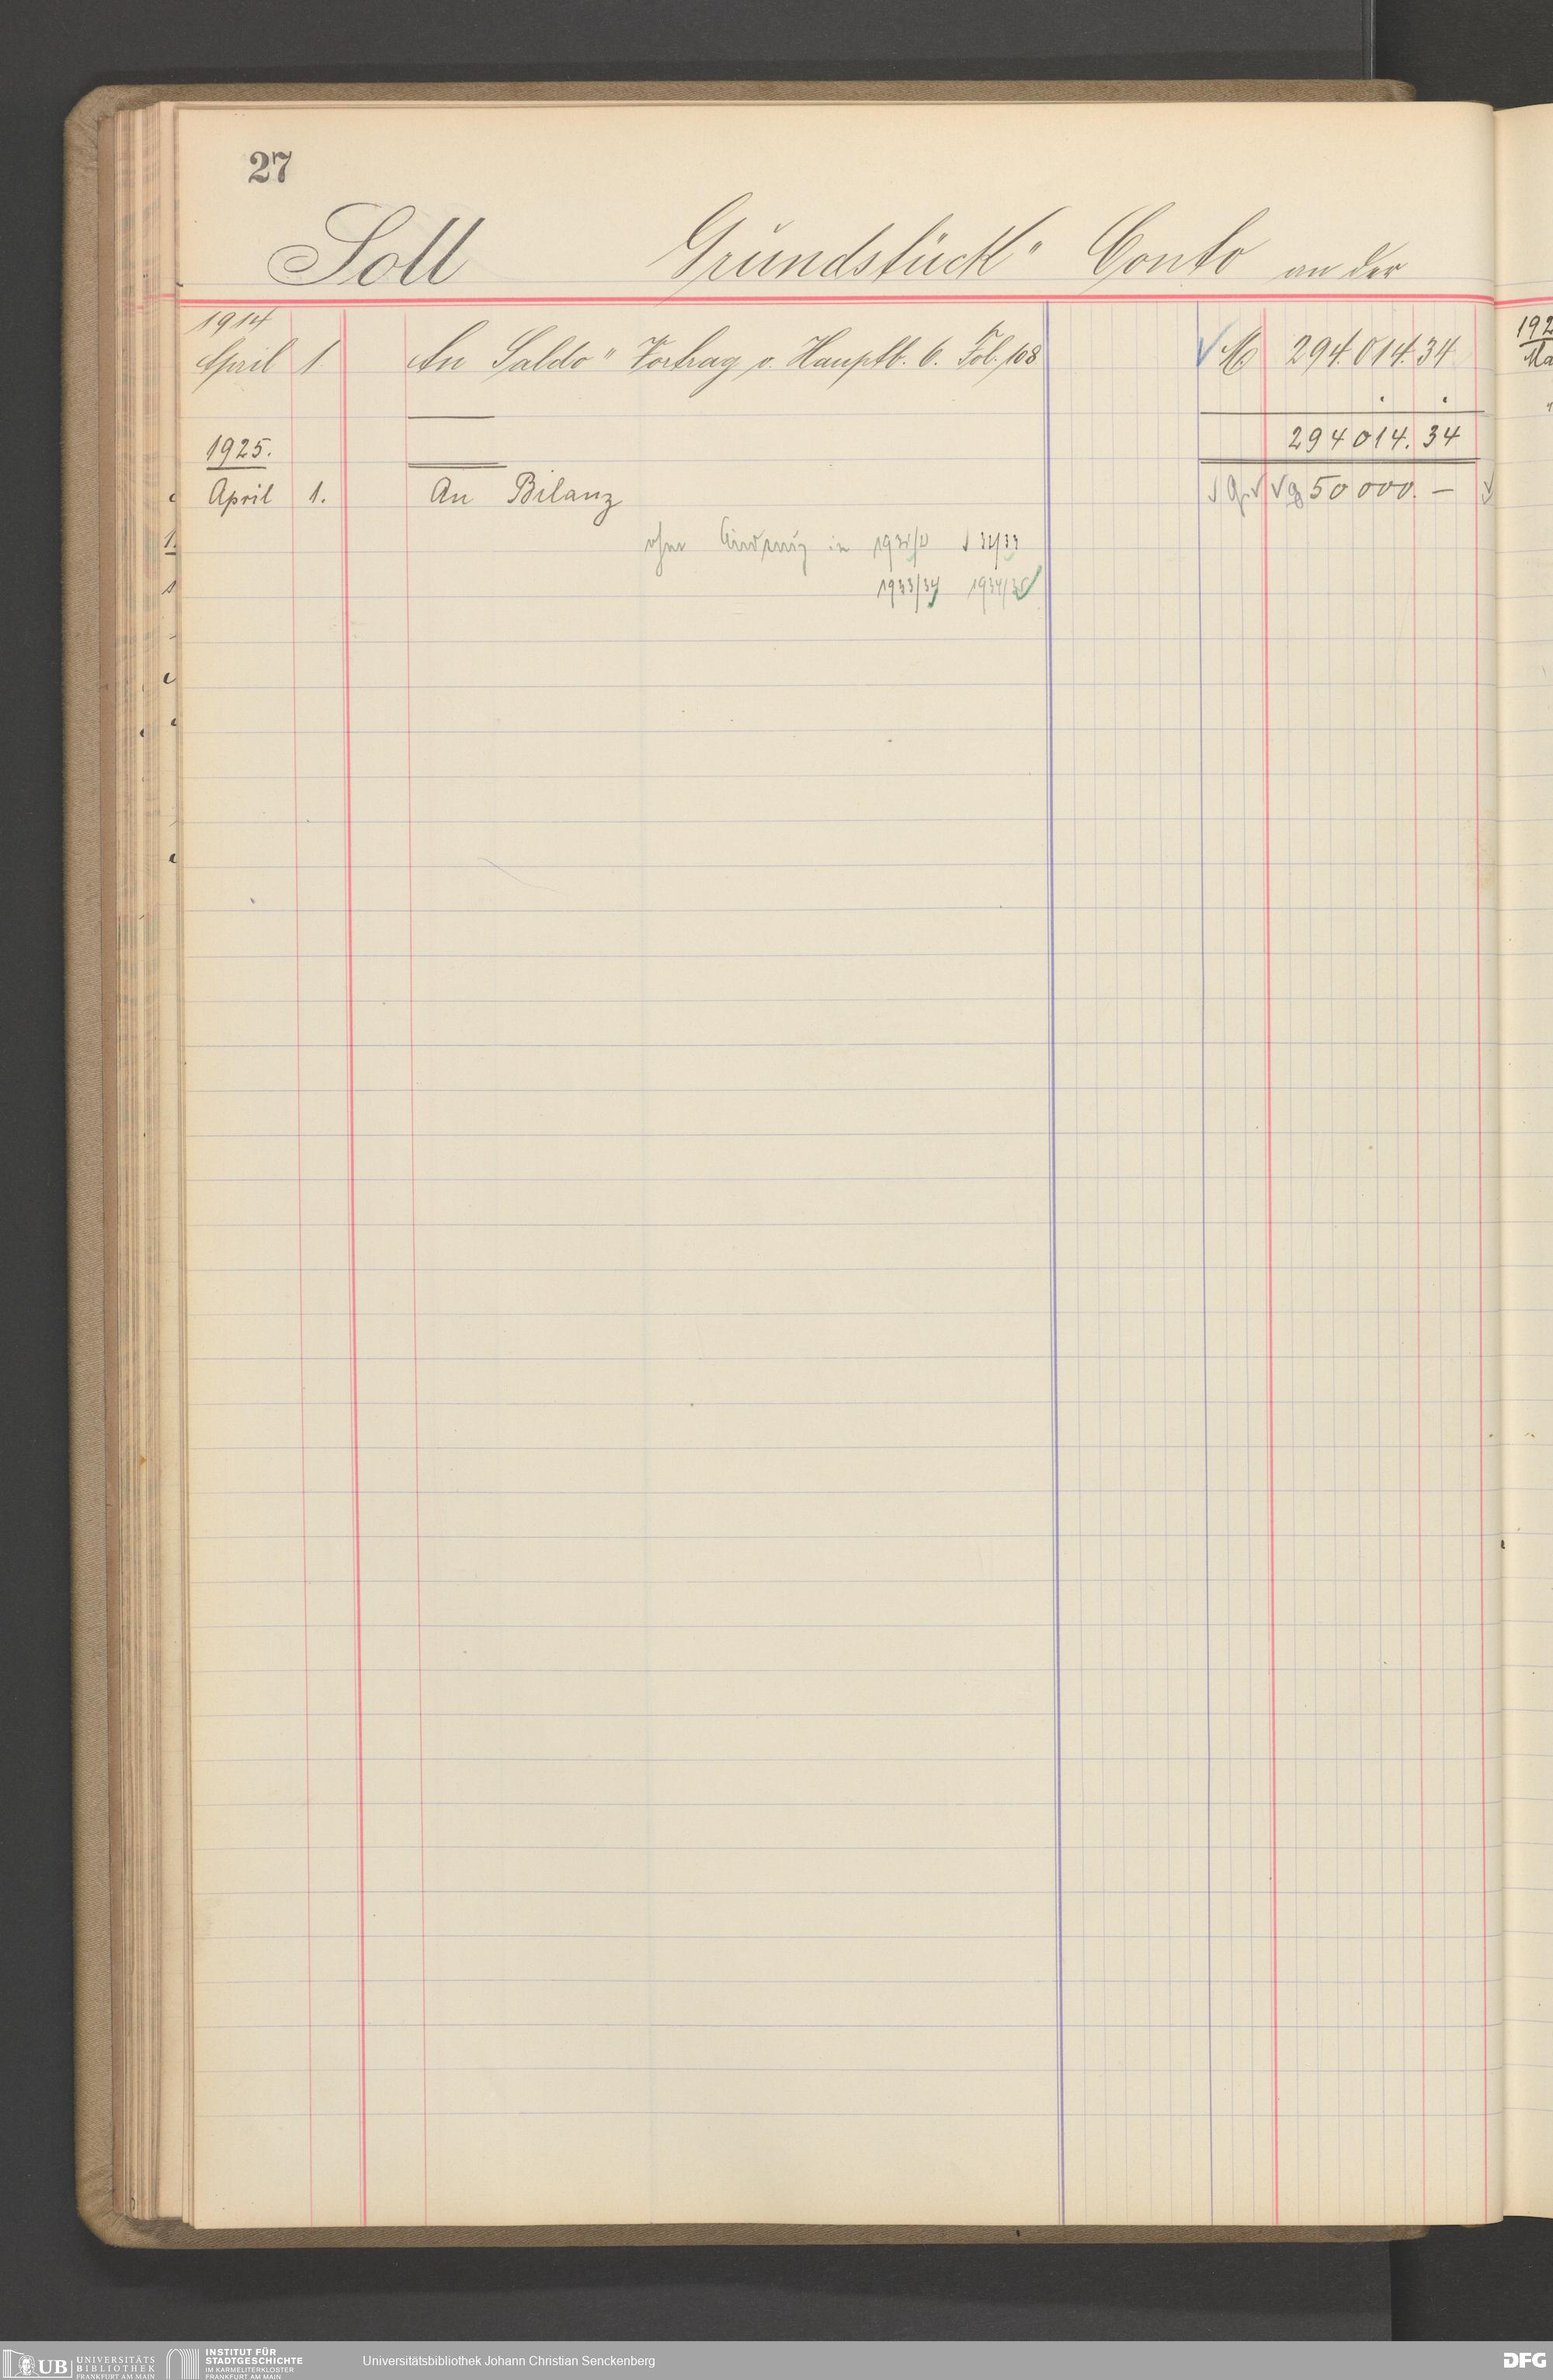 27
Soll Grundstück" Conto an der
1914
April 1 An Saldo" Vortrag v. Hauptb. 6. Fol. 108 M 294.014.34
294 014. 34
1925.
April 1. An Bilanz 50 000. —
ohne Änderung in 32/33
1933/34 1934/35
192
Ma
UB UNIVERSITÄTS
BIBLIOTHEK
FRANKFURT AM MAIN
INSTITUT FÜR
STADTGESCHICHTE
IM KARMELITERKLOSTER
FRANKFURT AM MAIN
Universitätsbibliothek Johann Christian Senckenberg
DFG